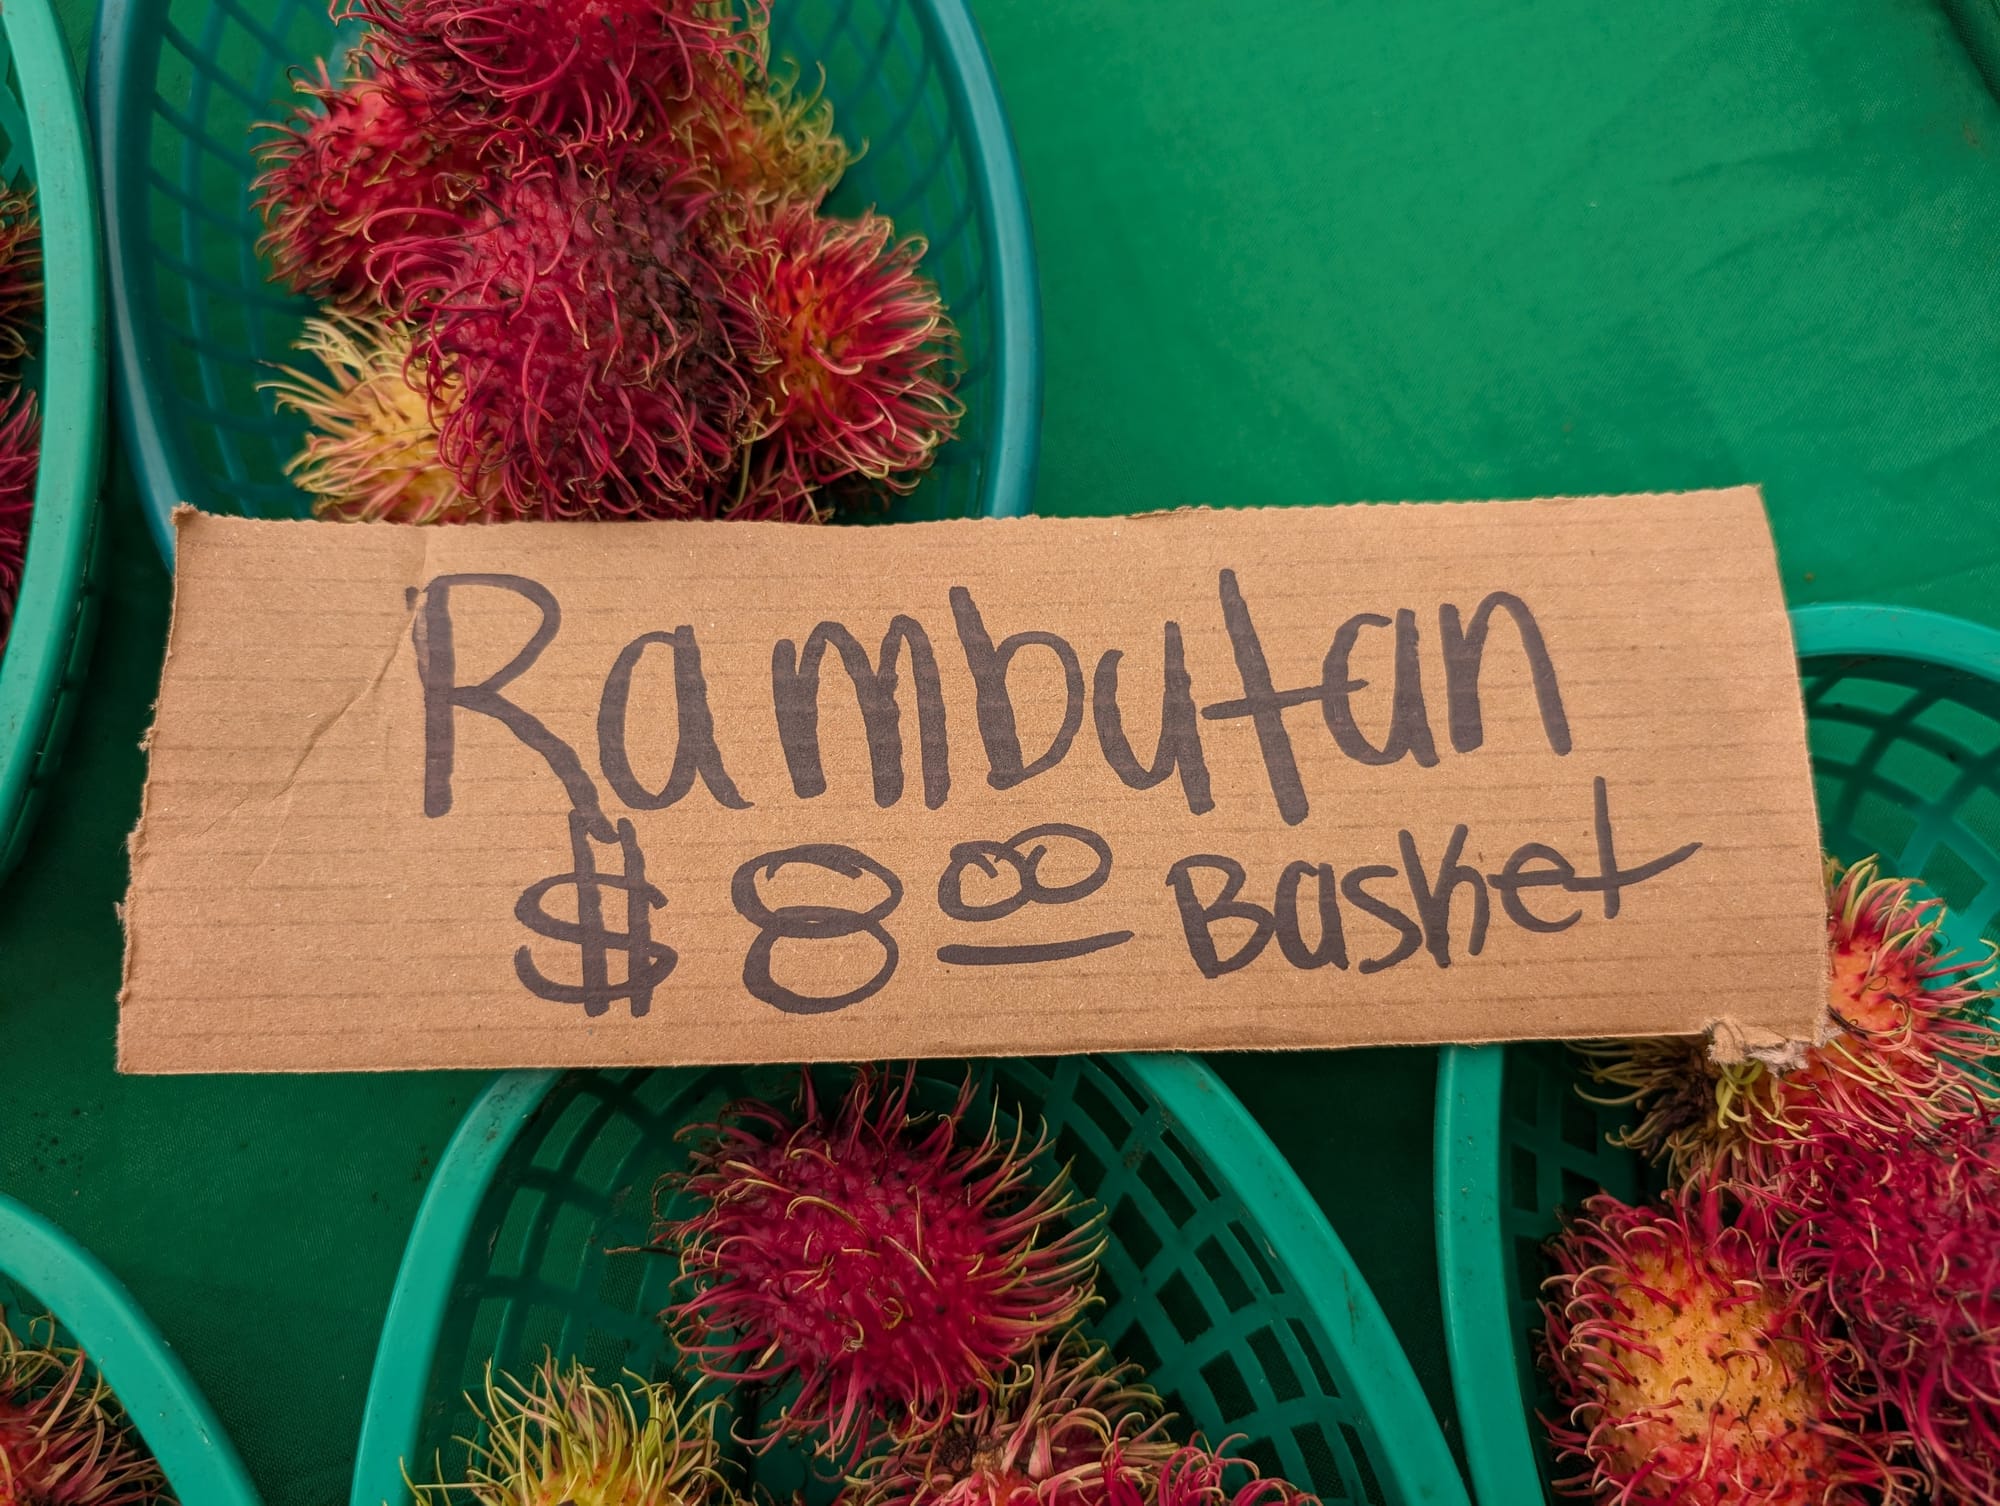 Rambutan
$ 8.00 Basket